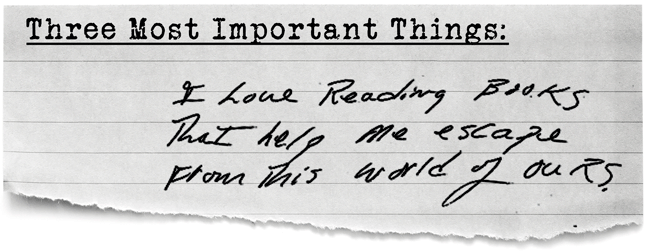 Three Most Important Things:
I Love Reading Books
That help me escape
From This world of ouRs.